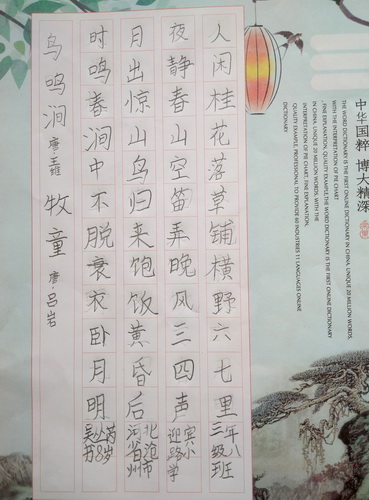 中华国粹 博大精深
THE WORD DICTIONARY IS THE FIRST ONLINE DICTIONARY IN CHINA, UNIQUE 20 MILLION WORDS,
WITH THE INTERPRETATION OF PIE CHART
, FINE EXPLANATION, QUALITY EXAMPLE, THE WORD DICTIONARY IS THE FIRST ONLINE DICTIONARY
IN CHINA, UNIQUE 20 MILLION WORDS, WITH THE
INTERPRETATION OF PIE CHART, FINE EXPLANATION,
QUALITY EXAMPLE, PROFESSIONAL TO PROVIDE 60 INDUSTRIES 11 LANGUAGES ONLINE
DICTIONARY
人闲桂花落草铺横野六七里
三年级八班
夜静春山空笛弄晚风三四声
迎宾路小学
月出惊山鸟归来饱饭黄昏后
河北省沧州市
时鸣春涧中不脱衰衣卧月明
8岁
鸟鸣涧 唐王维 牧童 唐·吕岩